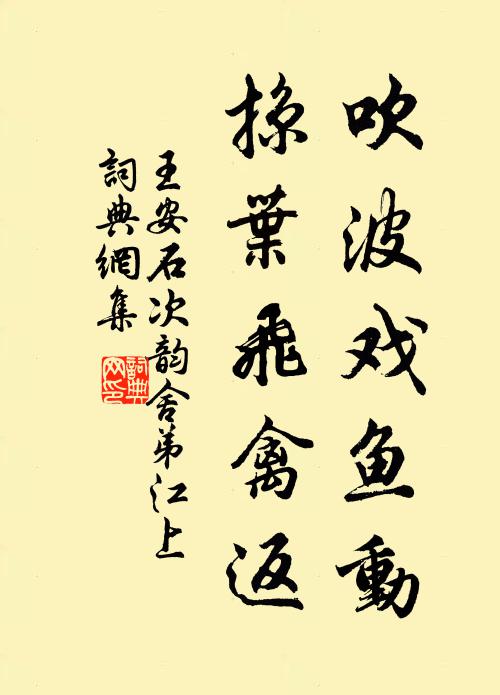 吹波戏鱼動
掠葉飛禽返
王安石次韵舍弟江上
詞典網集
詞典网印